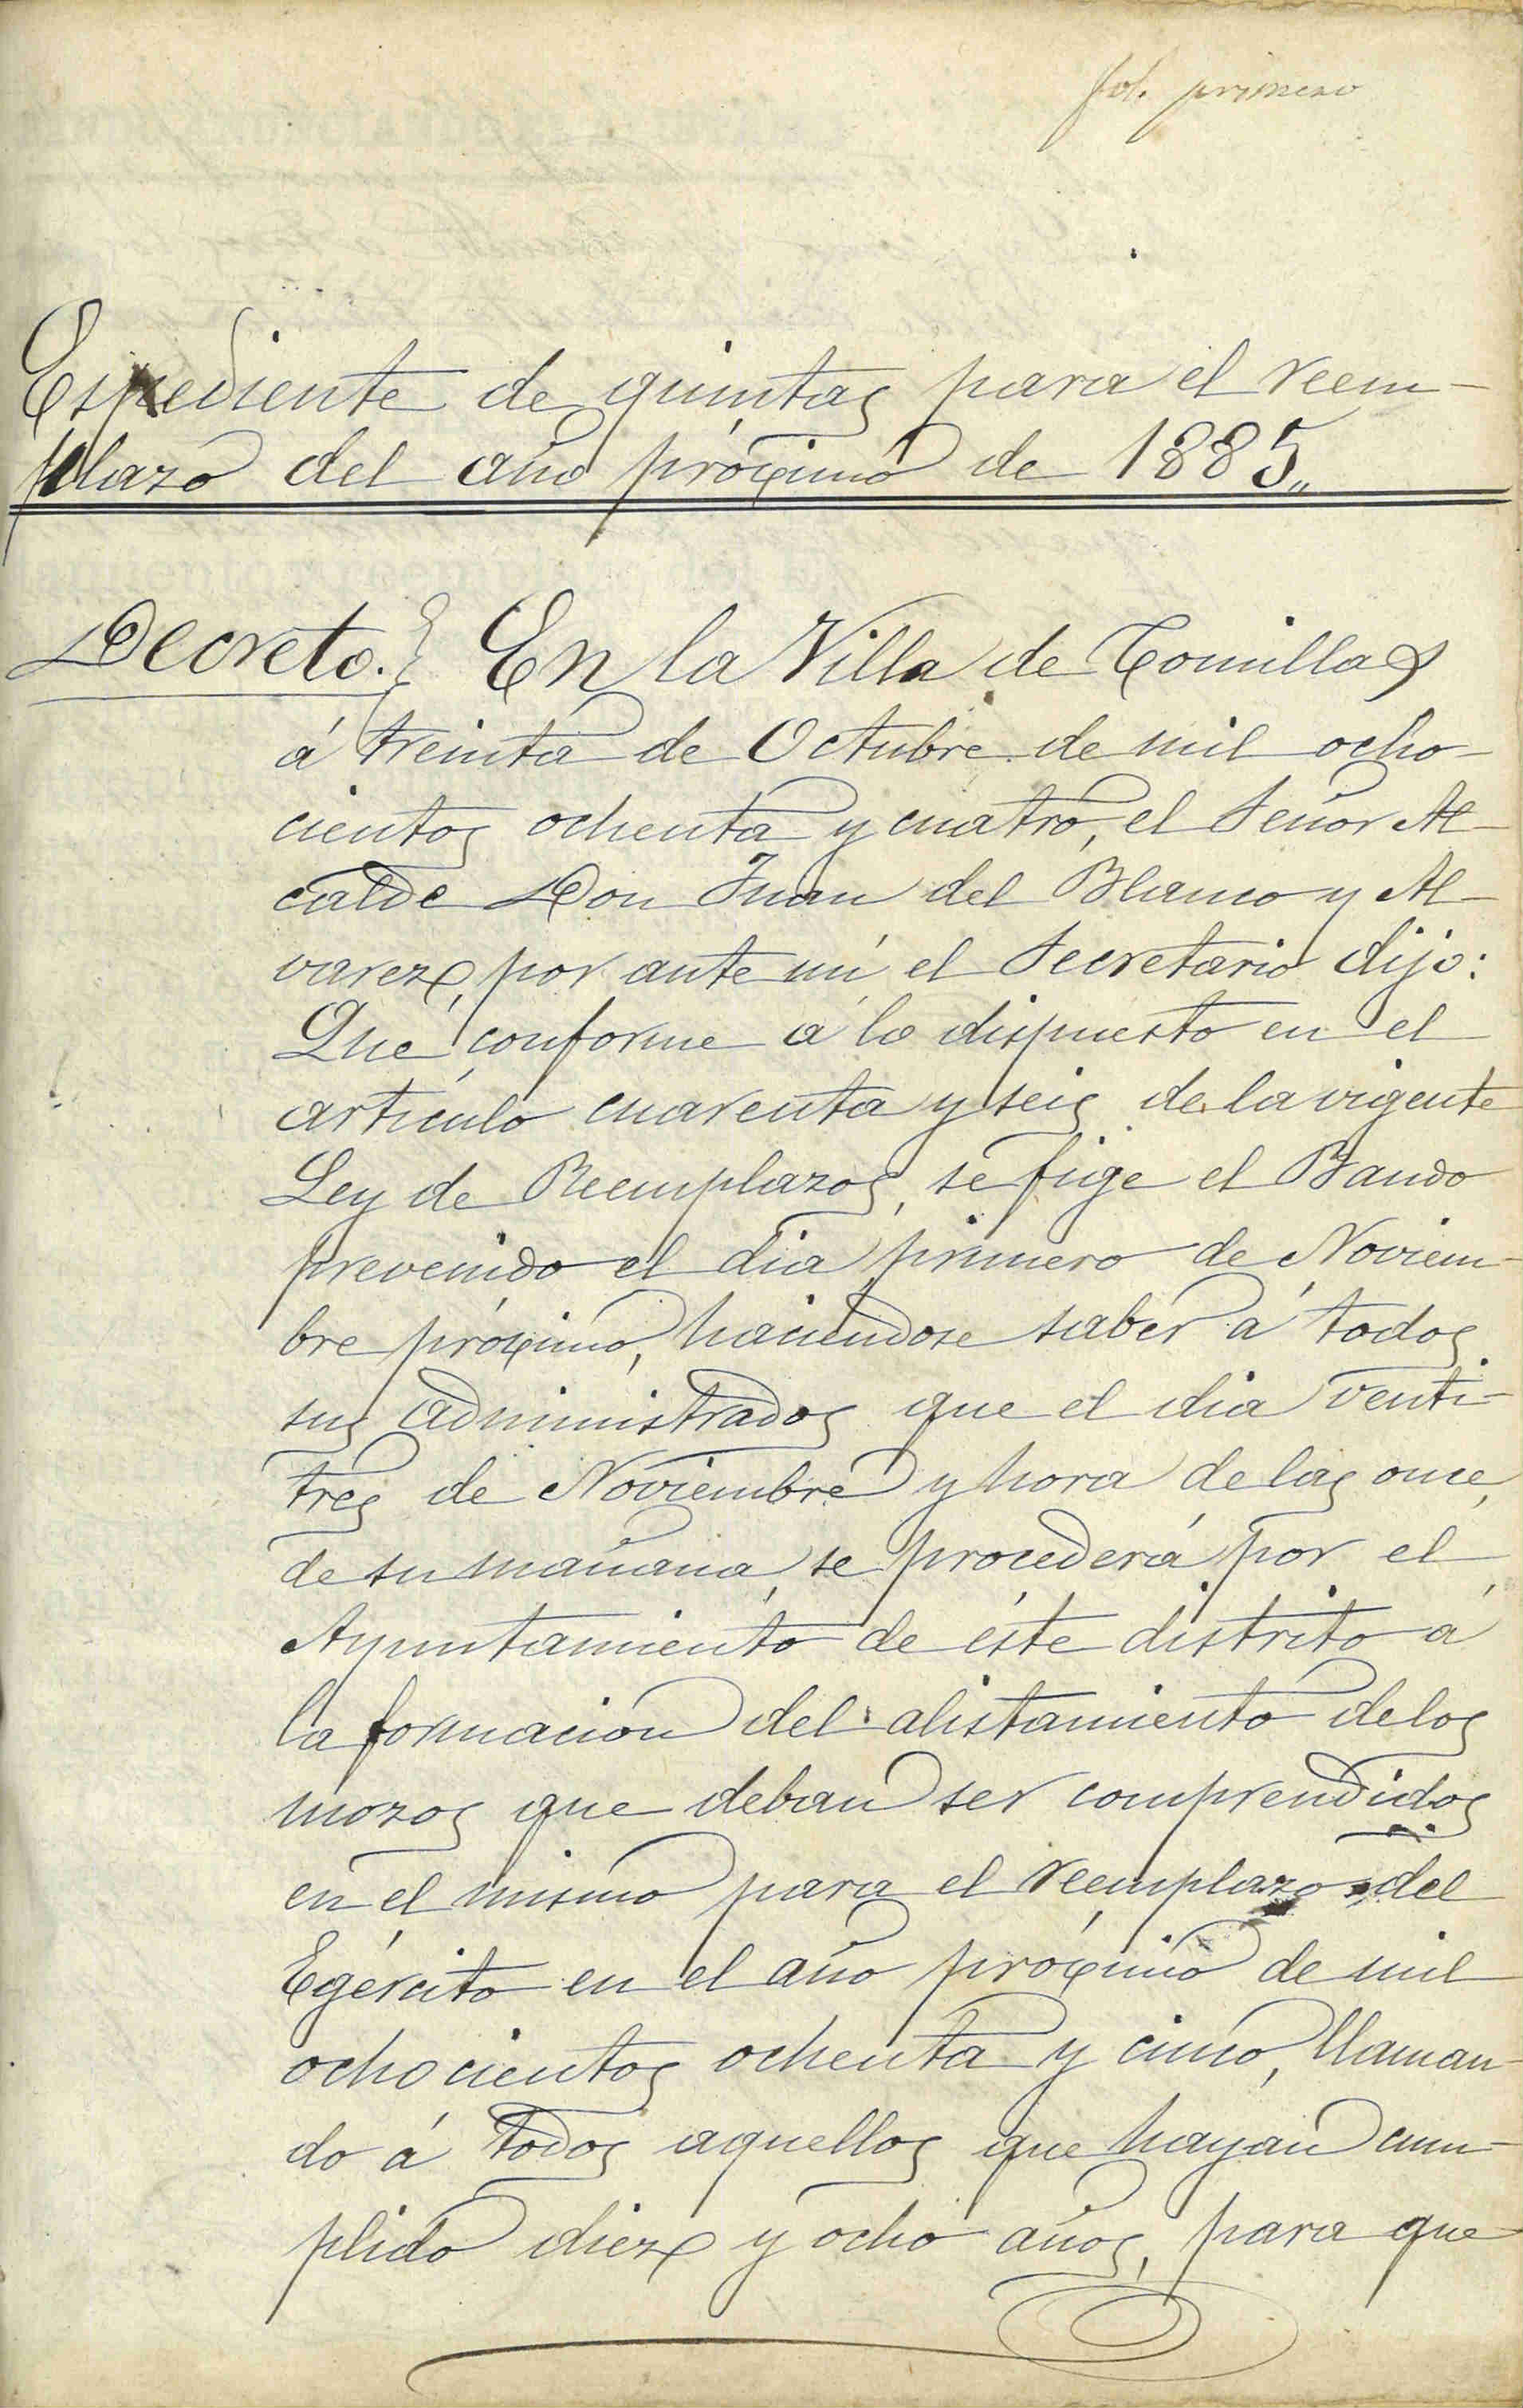 fol. primero
Espediente de quintas para el reem-
plazo del año próximo de 1885„
Decreto. En la Villa de Comillas
á treinta de Octubre de mil ocho-
cientos ochenta y cuatro, el Señor Al-
calde Don Juan del Blanco y Al-
varez, por ante mí el Secretario dijo:
Que conforme a lo dispuesto en el
artículo cuarenta y seis de la vigente
Ley de Reemplazos, se fige el Bando
prevenido el dia primero de Noviem-
bre próximo, haciendose saber á todos
sus administrados que el dia venti-
tres de Noviembre y hora de las once,
de su mañana, se procederá por el
Ayuntamiento de éste distrito á
la formacion del alistamiento de los
mozos que deban ser comprendidos
en él mismo para el reemplazo del
Egército en el año próximo de mil
ochocientos ochenta y cinco, llaman-
do á todos aquellos que hayan cum-
plido diez y ocho años, para que